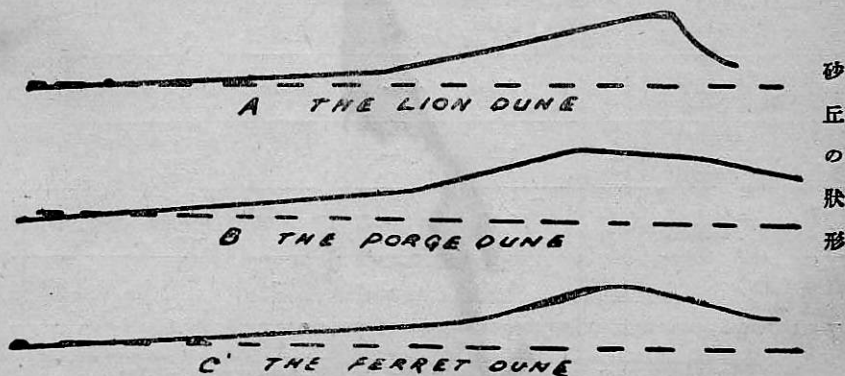 A THE LION DUNE
B THE PORGE DUNE
C' THE FERRET DUNE
砂丘の狀形